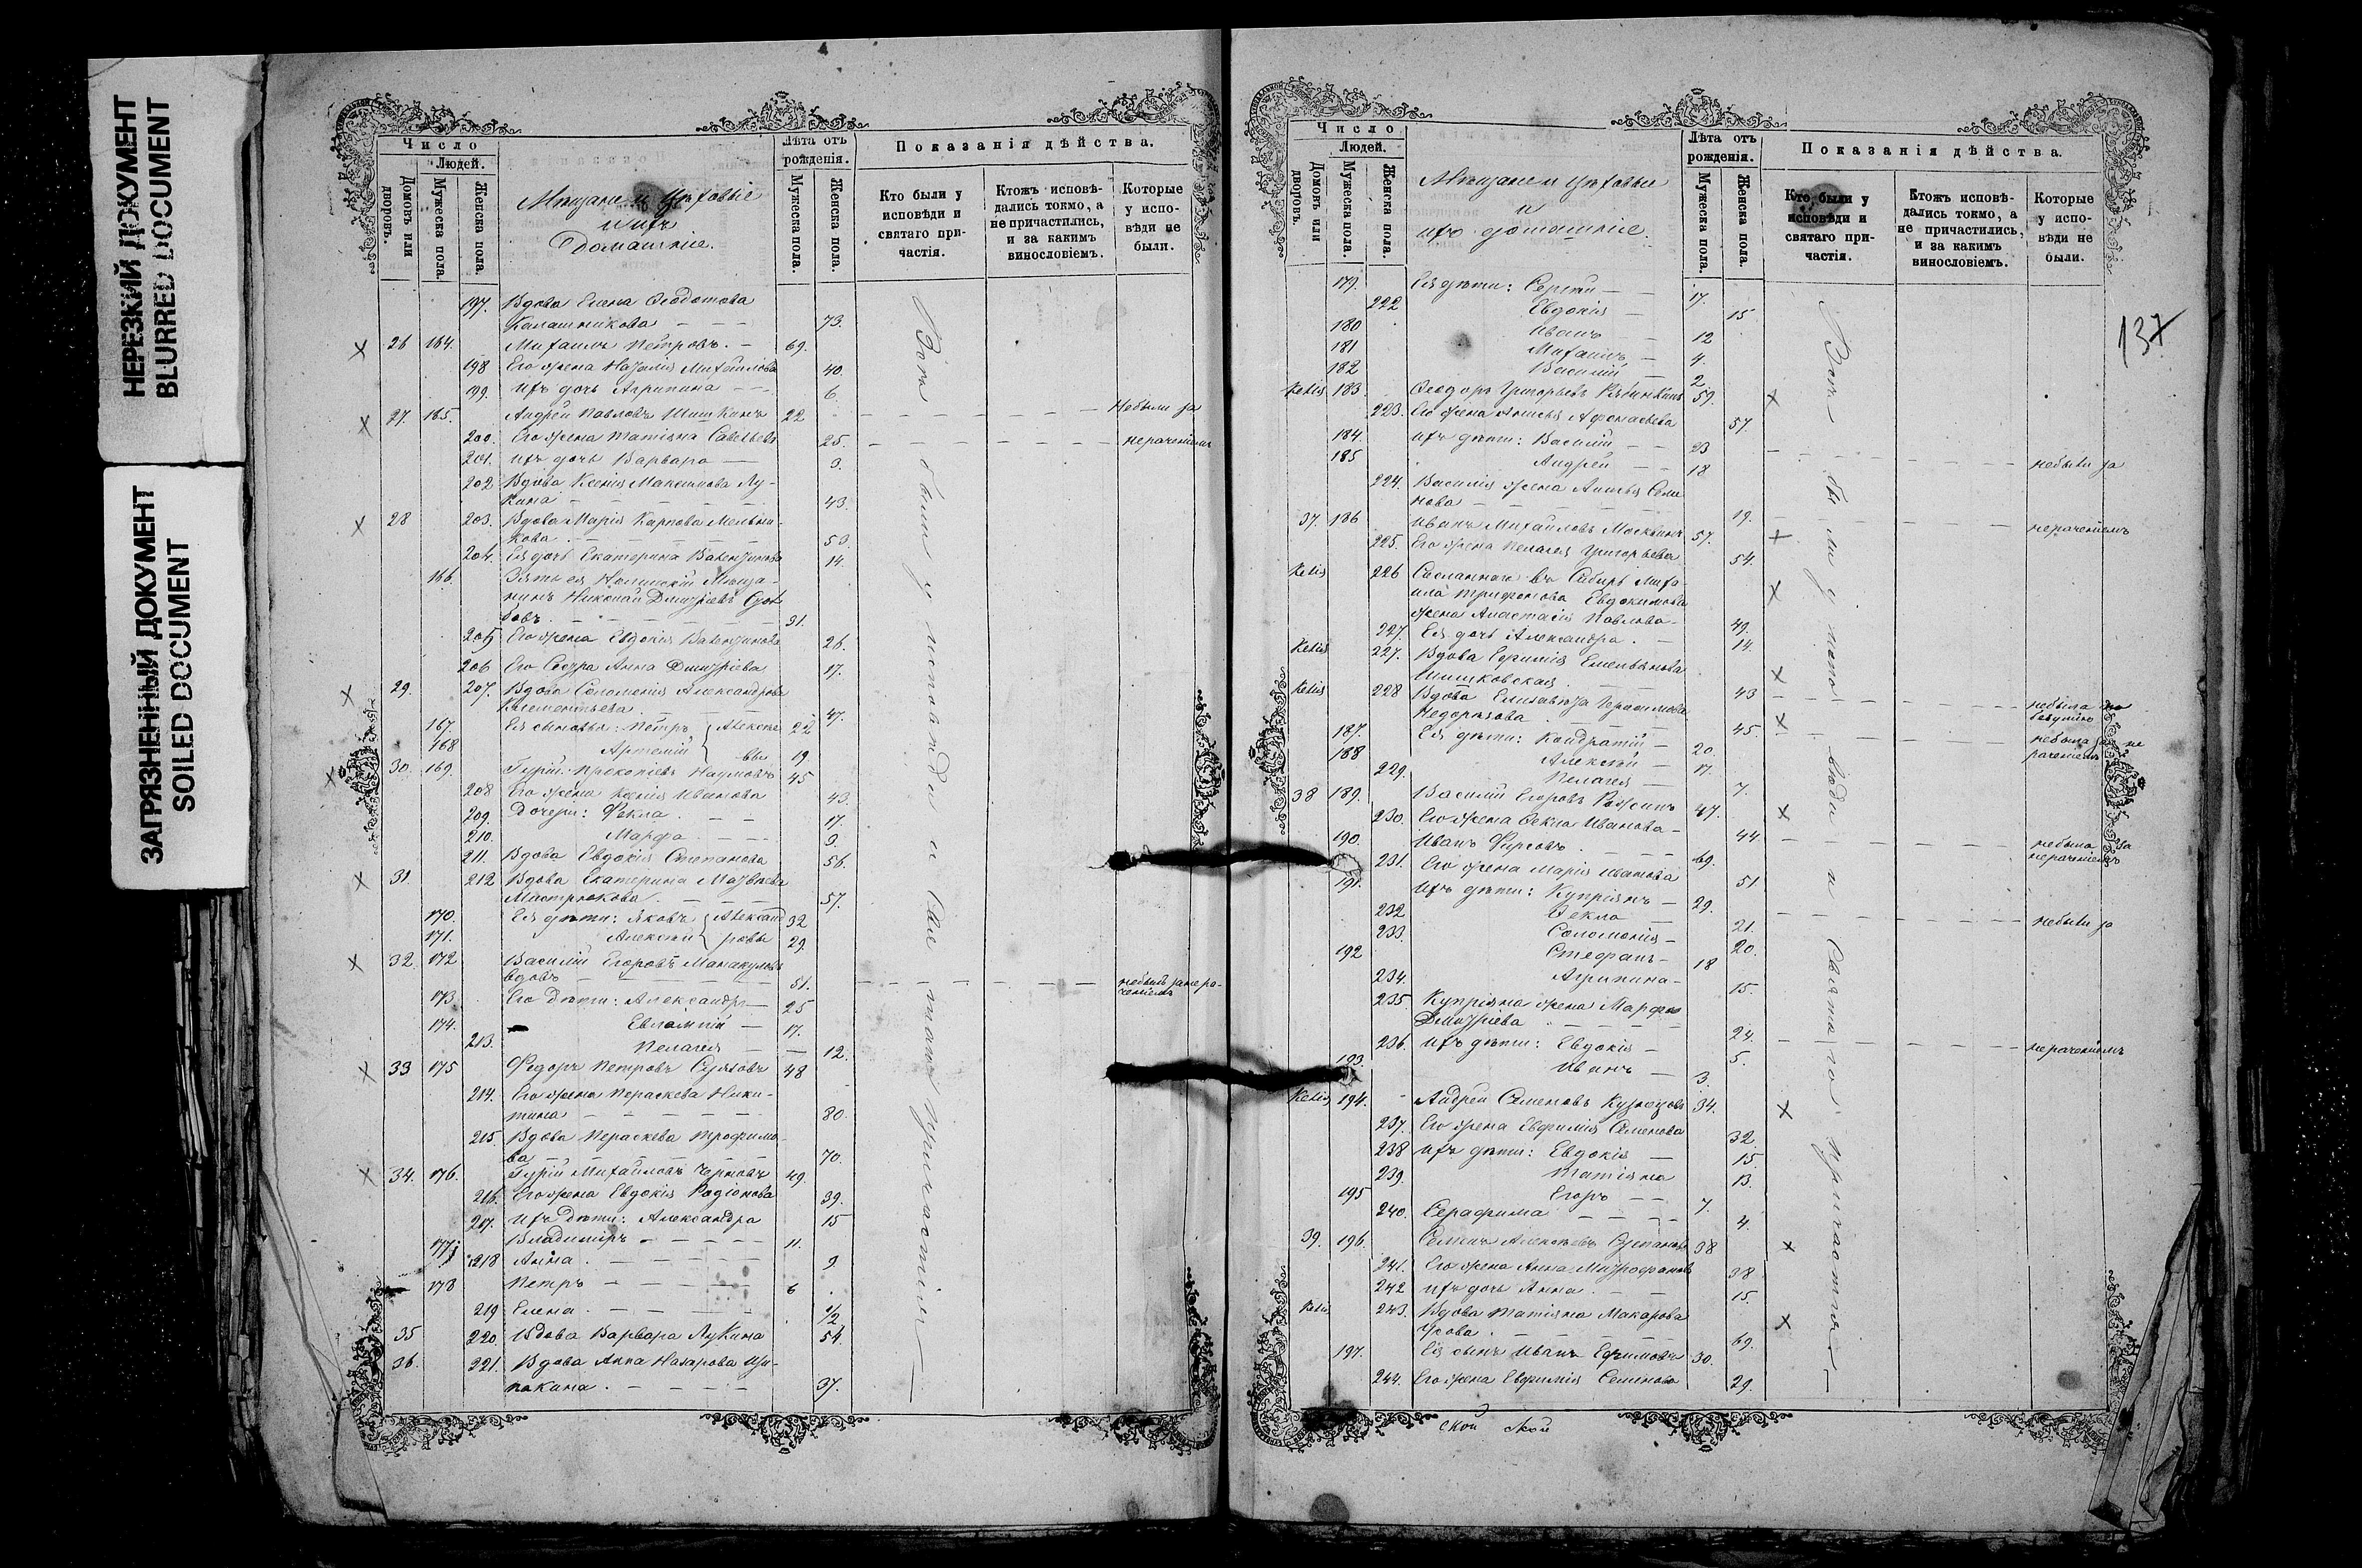 НЕРЕЗКИЙ ДОКУМЕНТ
BLURRED DOCUMENT
ЗАГРЯЗНЕННЫЙ ДОКУМЕНТ
SOILED DOCUMENT
Число
Людей.
Домовъ или дворовъ.
Мужеска пола.
Женска пола.
Мѣщане и Цѣховые
и ихъ
Домашніе.
Лѣта отъ рожденія.
Мужеска пола.
Женска пола.
Показанія дѣйства.
Кто были у исповѣди и святаго причастія.
Ктожъ исповѣдались токмо, а не причастились, и за какимъ винословіемъ.
Которые у исповѣди не были.
197. Вдова Елена Ѳеодотова
Калашникова 73.
26 164. Михаилъ Петровъ. 69.
198 Его жена Наталія Михайлова 40
199. Ихъ дочь Агрипина 6.
27. 165. Андрей Павловъ Шишкинъ 22 Небыли за
200. Его жена Татіяна Савельева 25. нераченіемъ
201. Ихъ дочь Варвара 3.
202 Вдова Ксенія Максимова Лу-
кина 43.
28 203. Вдова Марія Карпова Мельни-
кова 53.
204. Ея дочь Екатерина Валентинова 14.
166. Зять ея Нолинскій Мѣща-
нинъ Николай Дмитріевъ
бовъ. 31.
205 Его жена Евдокія Валентинова 26.
206 Его Сестра Анна Дмитріева 17.
29. 207. Вдова Соломонія Александрова
Клементьева 47.
167. Ея сыновья: Петръ Алексѣе 22
168 Артемій вы 19
30. 169. Гурій Прокопіевъ Наумовъ 45
208 Его жена Ксенія Иванова 43.
209. Дочери: Ѳекла 17.
210. Марфа 9.
211. Вдова Евдокія Степанова 56.
31. 212 Вдова Екатерина Матвѣева
Мастрюкова. 57.
170. Ея дѣти: Яковъ Александ 32
171. Алексѣй ровы 29
32. 172 Василій Егоровъ Манакуловъ
вдовъ 51. небылъ за нера-
ченіемъ
173 Его Дѣти: Александръ 25
174. Евлампій 17.
213. Пелагея 12.
33 175 Ѳедоръ Петровъ 48
214. Его жена Параскева Ники-
тина 30.
215 Вдова Параскева Трофимо-
ва 70.
34. 176. Гурій Михайловъ Черновъ 49
216. Его жена Евдокія Родіонова 39.
217. Ихъ Дѣти: Александра 15
177 Владиміръ 11.
218 Анна 9
178 Петръ 6
219 Елена 1/2
35 220. Вдова Варвара Лукина 54.
36. 221. Вдова Анна Назарова
пакина. 37.
Всѣ были у исповѣди и Святаго причастія
Число
Людей.
Домовъ или дворовъ.
Мужеска пола.
Женска пола.
Мѣщане и Цѣховые
и
ихъ домашніе.
Лѣта отъ рожденія.
Мужеска пола.
Женска пола.
Показанія дѣйства.
Кто были у исповѣди и святаго причастія.
Ктожъ исповѣдались токмо, а не причастились, и за какимъ винословіемъ.
Которые у исповѣди не были.
137
179. Ея дѣти: Сергѣй 17.
222 Евдокія 15
180 Иванъ 12
181 Михаилъ 4.
182 Василій 2
Келія 183. Ѳеодоръ Григорьевъ 59.
223. Его жена Анисья Афонасьева 57.
184. Ихъ дѣти: Василій 23 небыли за
185 Андрей 18
224. Василія жена Анисья Семе
нова 19. нераченіемъ
37. 186 Иванъ Михайловъ Москвинъ 57.
225. Его жена Пелагея Григорьева 54.
Келія 226 Сосланнаго въ Сибирь Миха-
ила Трифонова Евдокимова
жена Анастасія Павлова 49.
227. Ея дочь Александра 14.
Келія 227. Вдова Ефимія Емельянова
Шишковская 43 небыла по
Келія 228 Вдова Елизавета Герасимова
45. небыла за не
раченіемъ
187. Ея дѣти: Кондратій 20.
188 Алексѣй 17.
229 Пелагея 7.
38 189. Василій Егоровъ 47.
230. Его жена Ѳекла Иванова 44. небыла за
нераченіемъ
190. Иванъ Фирсовъ 69.
231. Его жена Марія Иванова 51
191. Ихъ дѣти: Купріянъ 29. небыли за
232 Ѳекла 21.
233. Соломонія 20.
192 Стефанъ 18
234. Агрипина 15.
235 Купріяна жена Марфа
Дмитріева 24. нераченіемъ
236. Ихъ дѣти: Евдокія 5.
193. Иванъ 3.
Келія 194. Андрей Семеновъ Кузнецовъ 34.
237. Его жена Евфимія Семенова 32
238 Ихъ дѣти: Евдокія 15.
239. Татіяна 13.
195 Егоръ 7.
240. Серафима 4.
39. 196. Семенъ Алексѣевъ Степановъ 38
241. Его жена Анна Митрофанова 38
242 Ихъ дочь Анна 15.
Келія 243. Вдова Татіяна Макарова
Урова 69.
197. Ея сынъ Иванъ Ефимовъ 30.
244. Его жена Евфимія Семенова 29.
Всѣ были у исповѣди и Святаго причастія